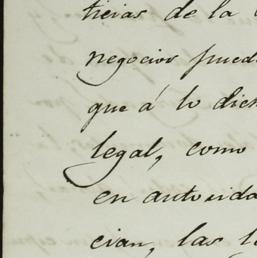 ticias de la
negocios pued
que á lo dic
legal, como
en autorida
cian, las l